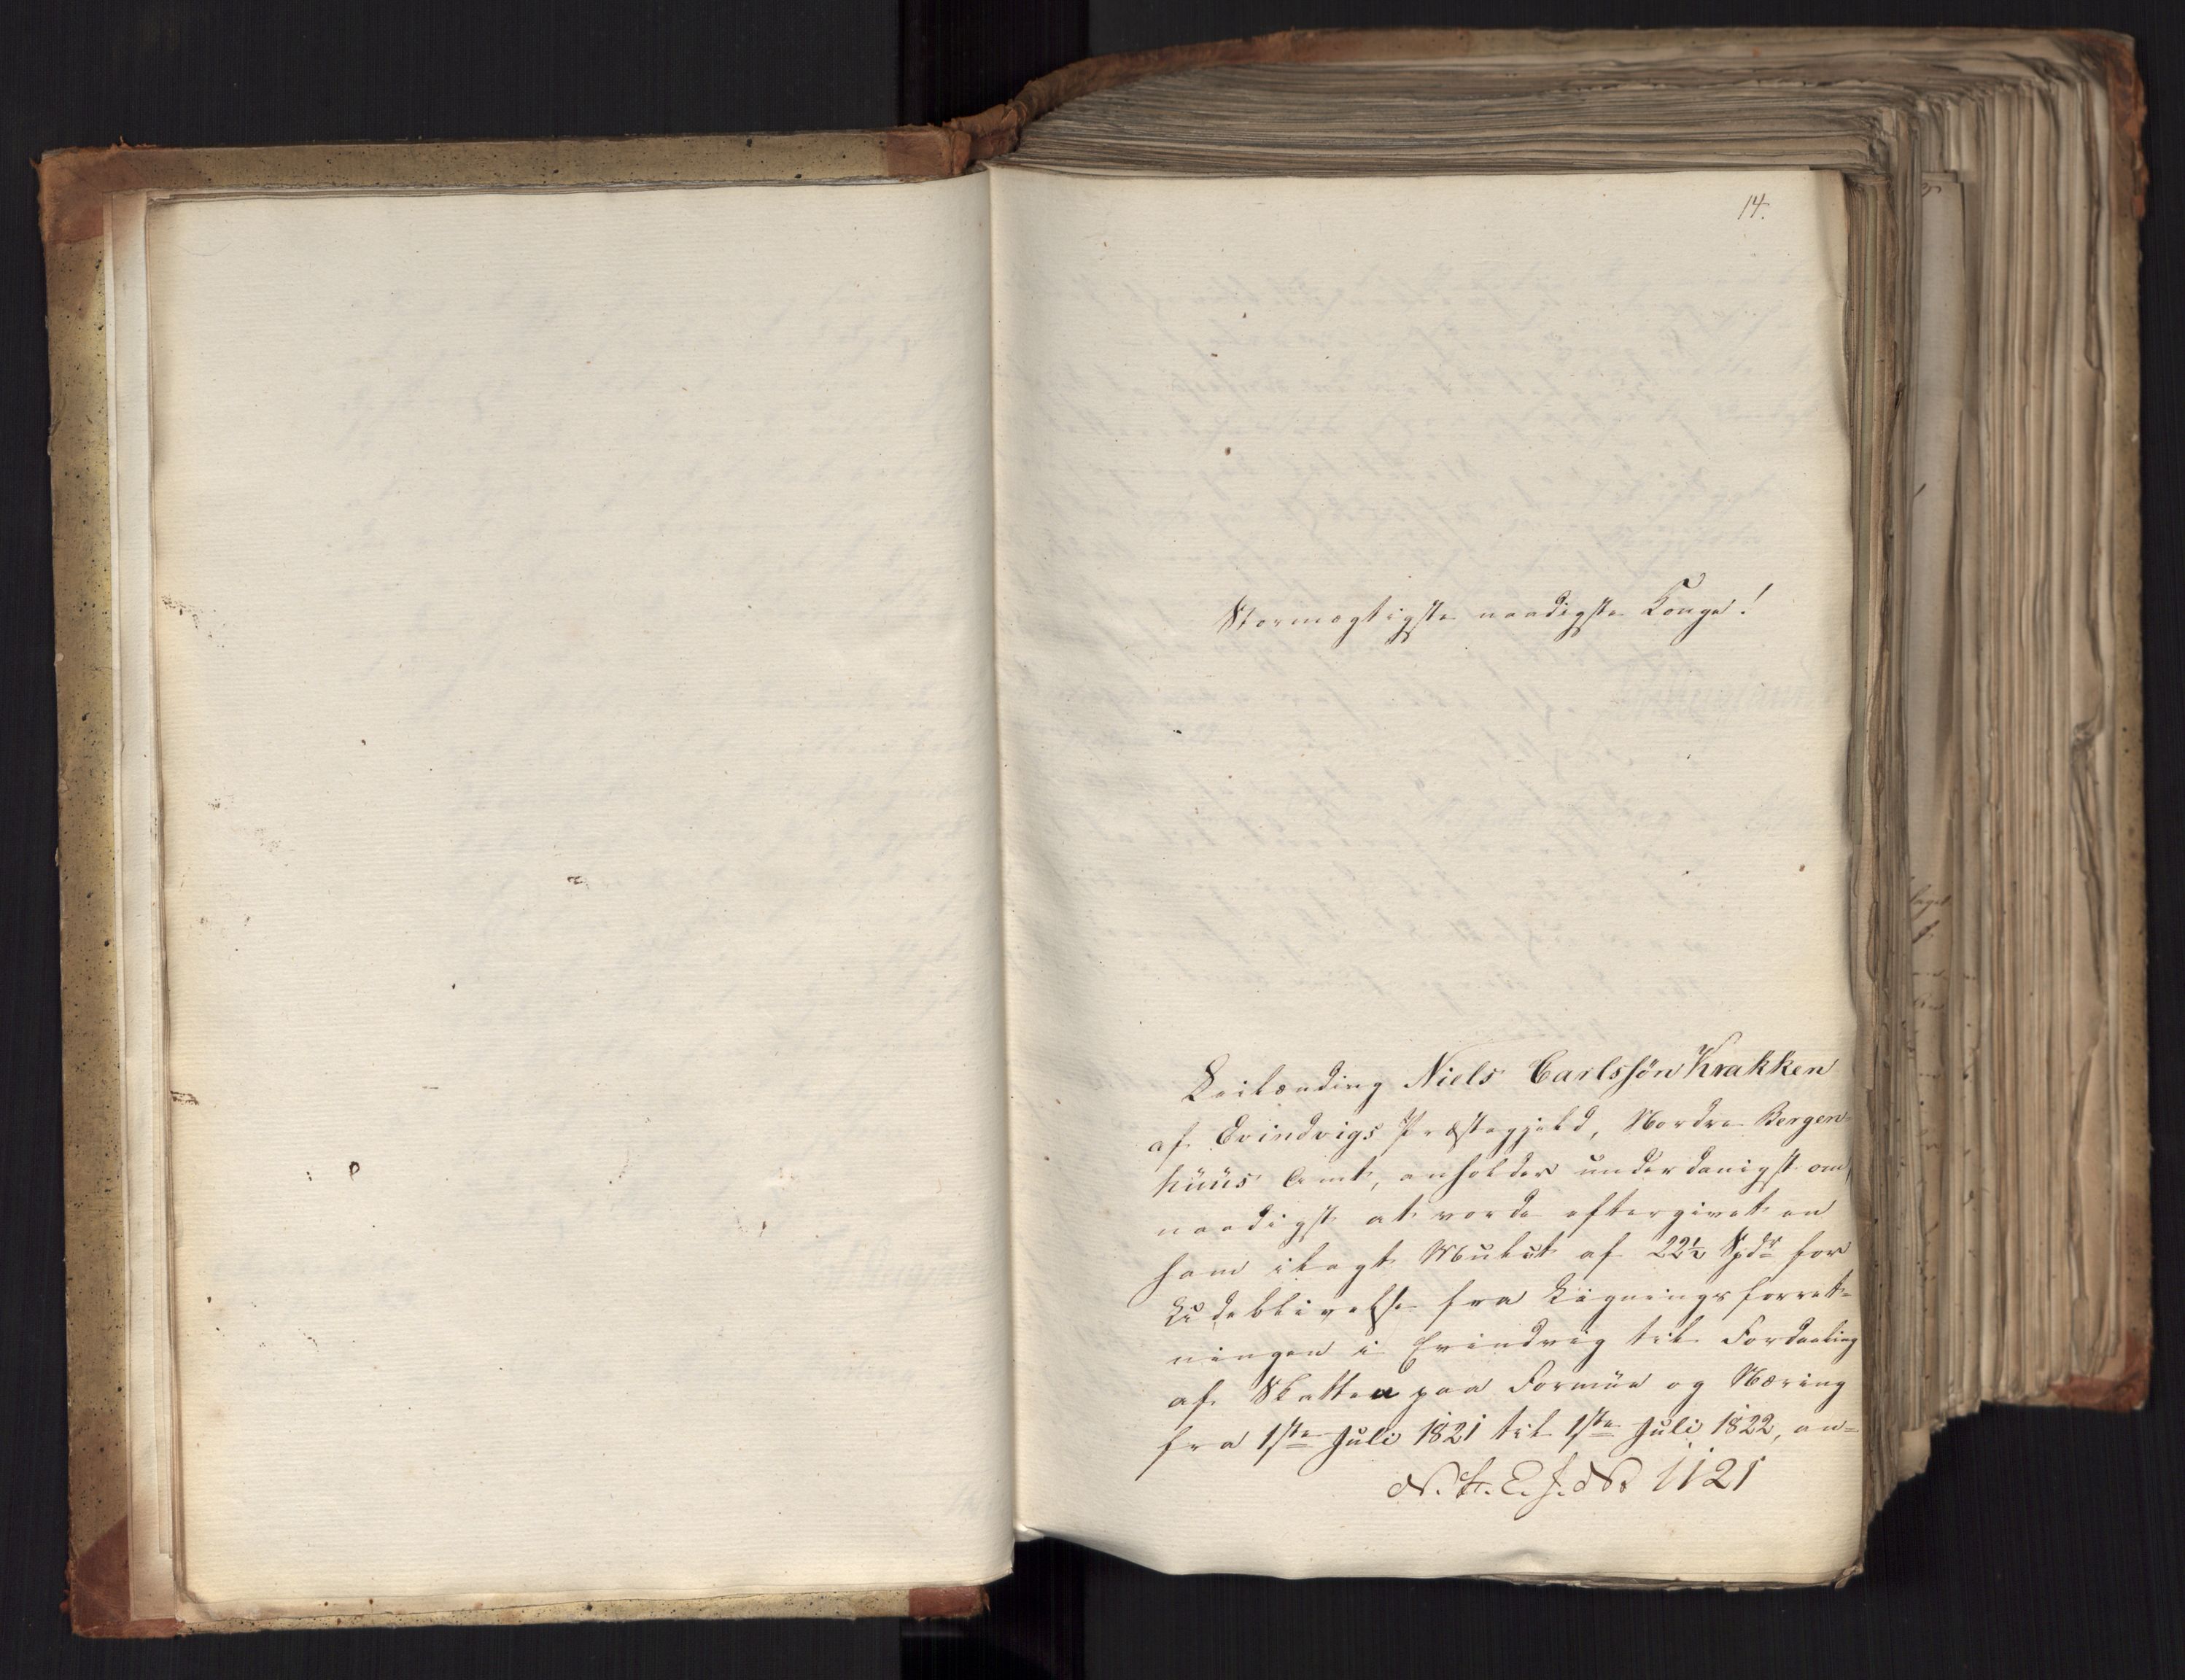 14.
Stormægtigste naadigste Konge!
Leilænding Niels Carlssön Krakken
af Evindvigs Præstegjeld, Nordre Bergen-
huus Amt, anholder underdanigst om,
naadigst at vorde eftergivet en
ham ilagt Mulct af 22½ Spdr for
Udeblivelse fra Ligningsforret-
ningen i Evindvig til Fordeeling
af Skatten paa Formue og Næring
fra 1ste Juli 1821 til 1ste Juli 1822, an=
N. H. E. J. No 1121